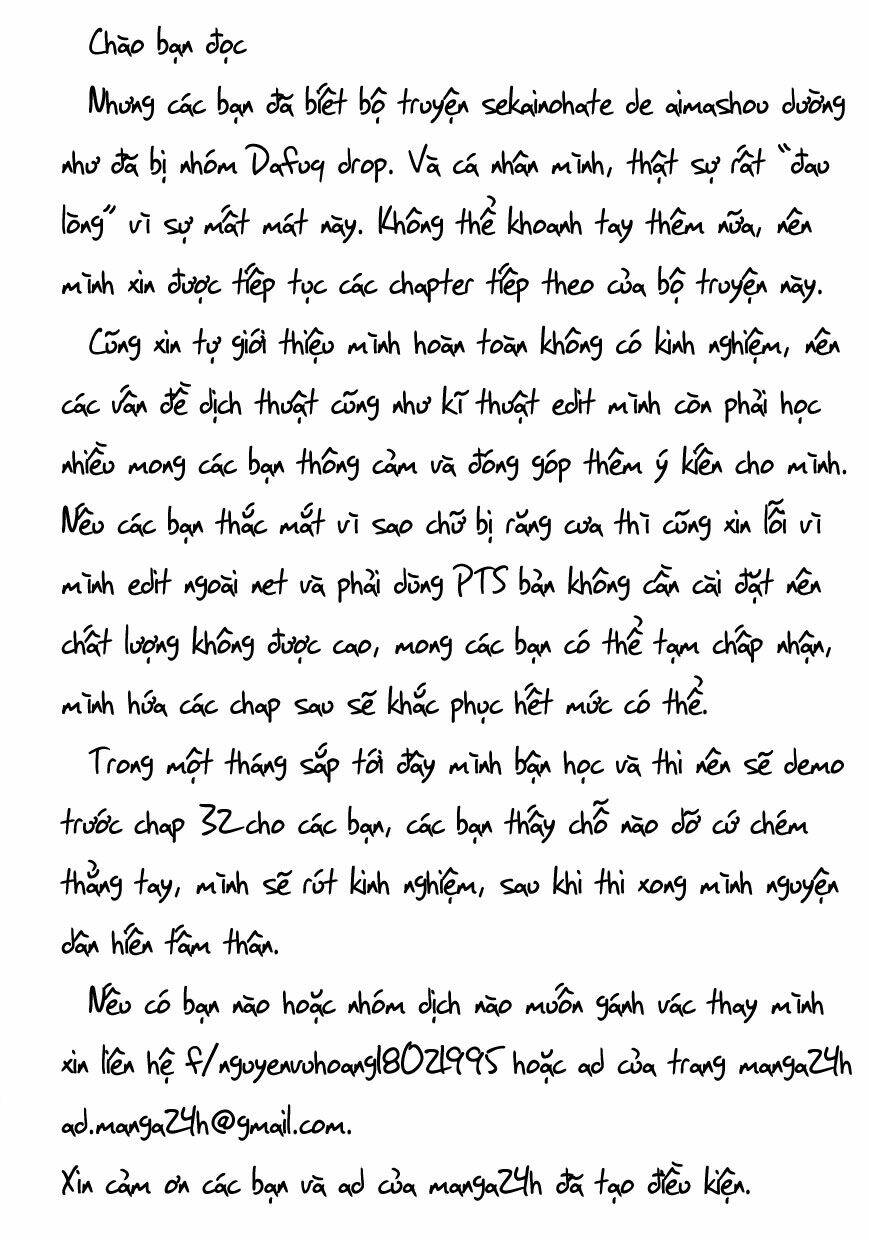 Chào bạn đọc
Nhưng các bạn đã biết bộ truyện sekainohate de aimashou dường
như đã bị nhóm Dafuq drop. Và cá nhân mình, thật sự rất "đau
lòng" vì sự mất mát này. Không thể khoanh tay thêm nữa, nên
mình xin được tiếp tục các chapter tiếp theo của bộ truyện này.
Cũng xin tự giới thiệu mình hoàn toàn không có kinh nghiệm, nên
các vấn đề dịch thuật cũng như kĩ thuật edit mình còn phải học
nhiều mong các bạn thông cảm và đóng góp thêm ý kiến cho mình.
Nếu các bạn thắc mắt vì sao chữ bị răng cưa thì cũng xin lỗi vì
mình edit ngoài net và phải dùng PTS bản không cần cài đặt nên
chất lượng không được cao, mong các bạn có thể tạm chấp nhận,
mình hứa các chap sau sẽ khắc phục hết mức có thể.
Trong một tháng sắp tới đây mình bận học và thi nên sẽ demo
trước chap 32 cho các bạn, các bạn thấy chỗ nào dỡ cứ chém
thẳng tay, mình sẽ rút kinh nghiệm, sau khi thi xong mình nguyện
dân hiến tấm thân.
Nếu có bạn nào hoặc nhóm dịch nào muốn gánh vác thay mình
xin liên hệ f/nguyenvuhoang18021995 hoặc ad của trang manga24h
ad.manga24h@gmail.com.
Xin cảm ơn các bạn và ad của manga24h đã tạo điều kiện.